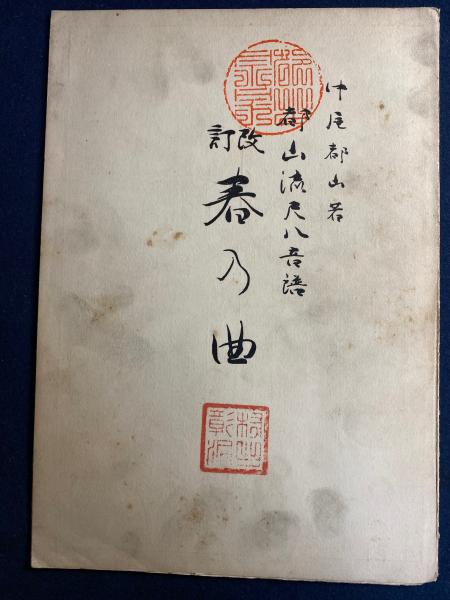 中尾都山著
都山流尺八音譜
改訂
春乃曲